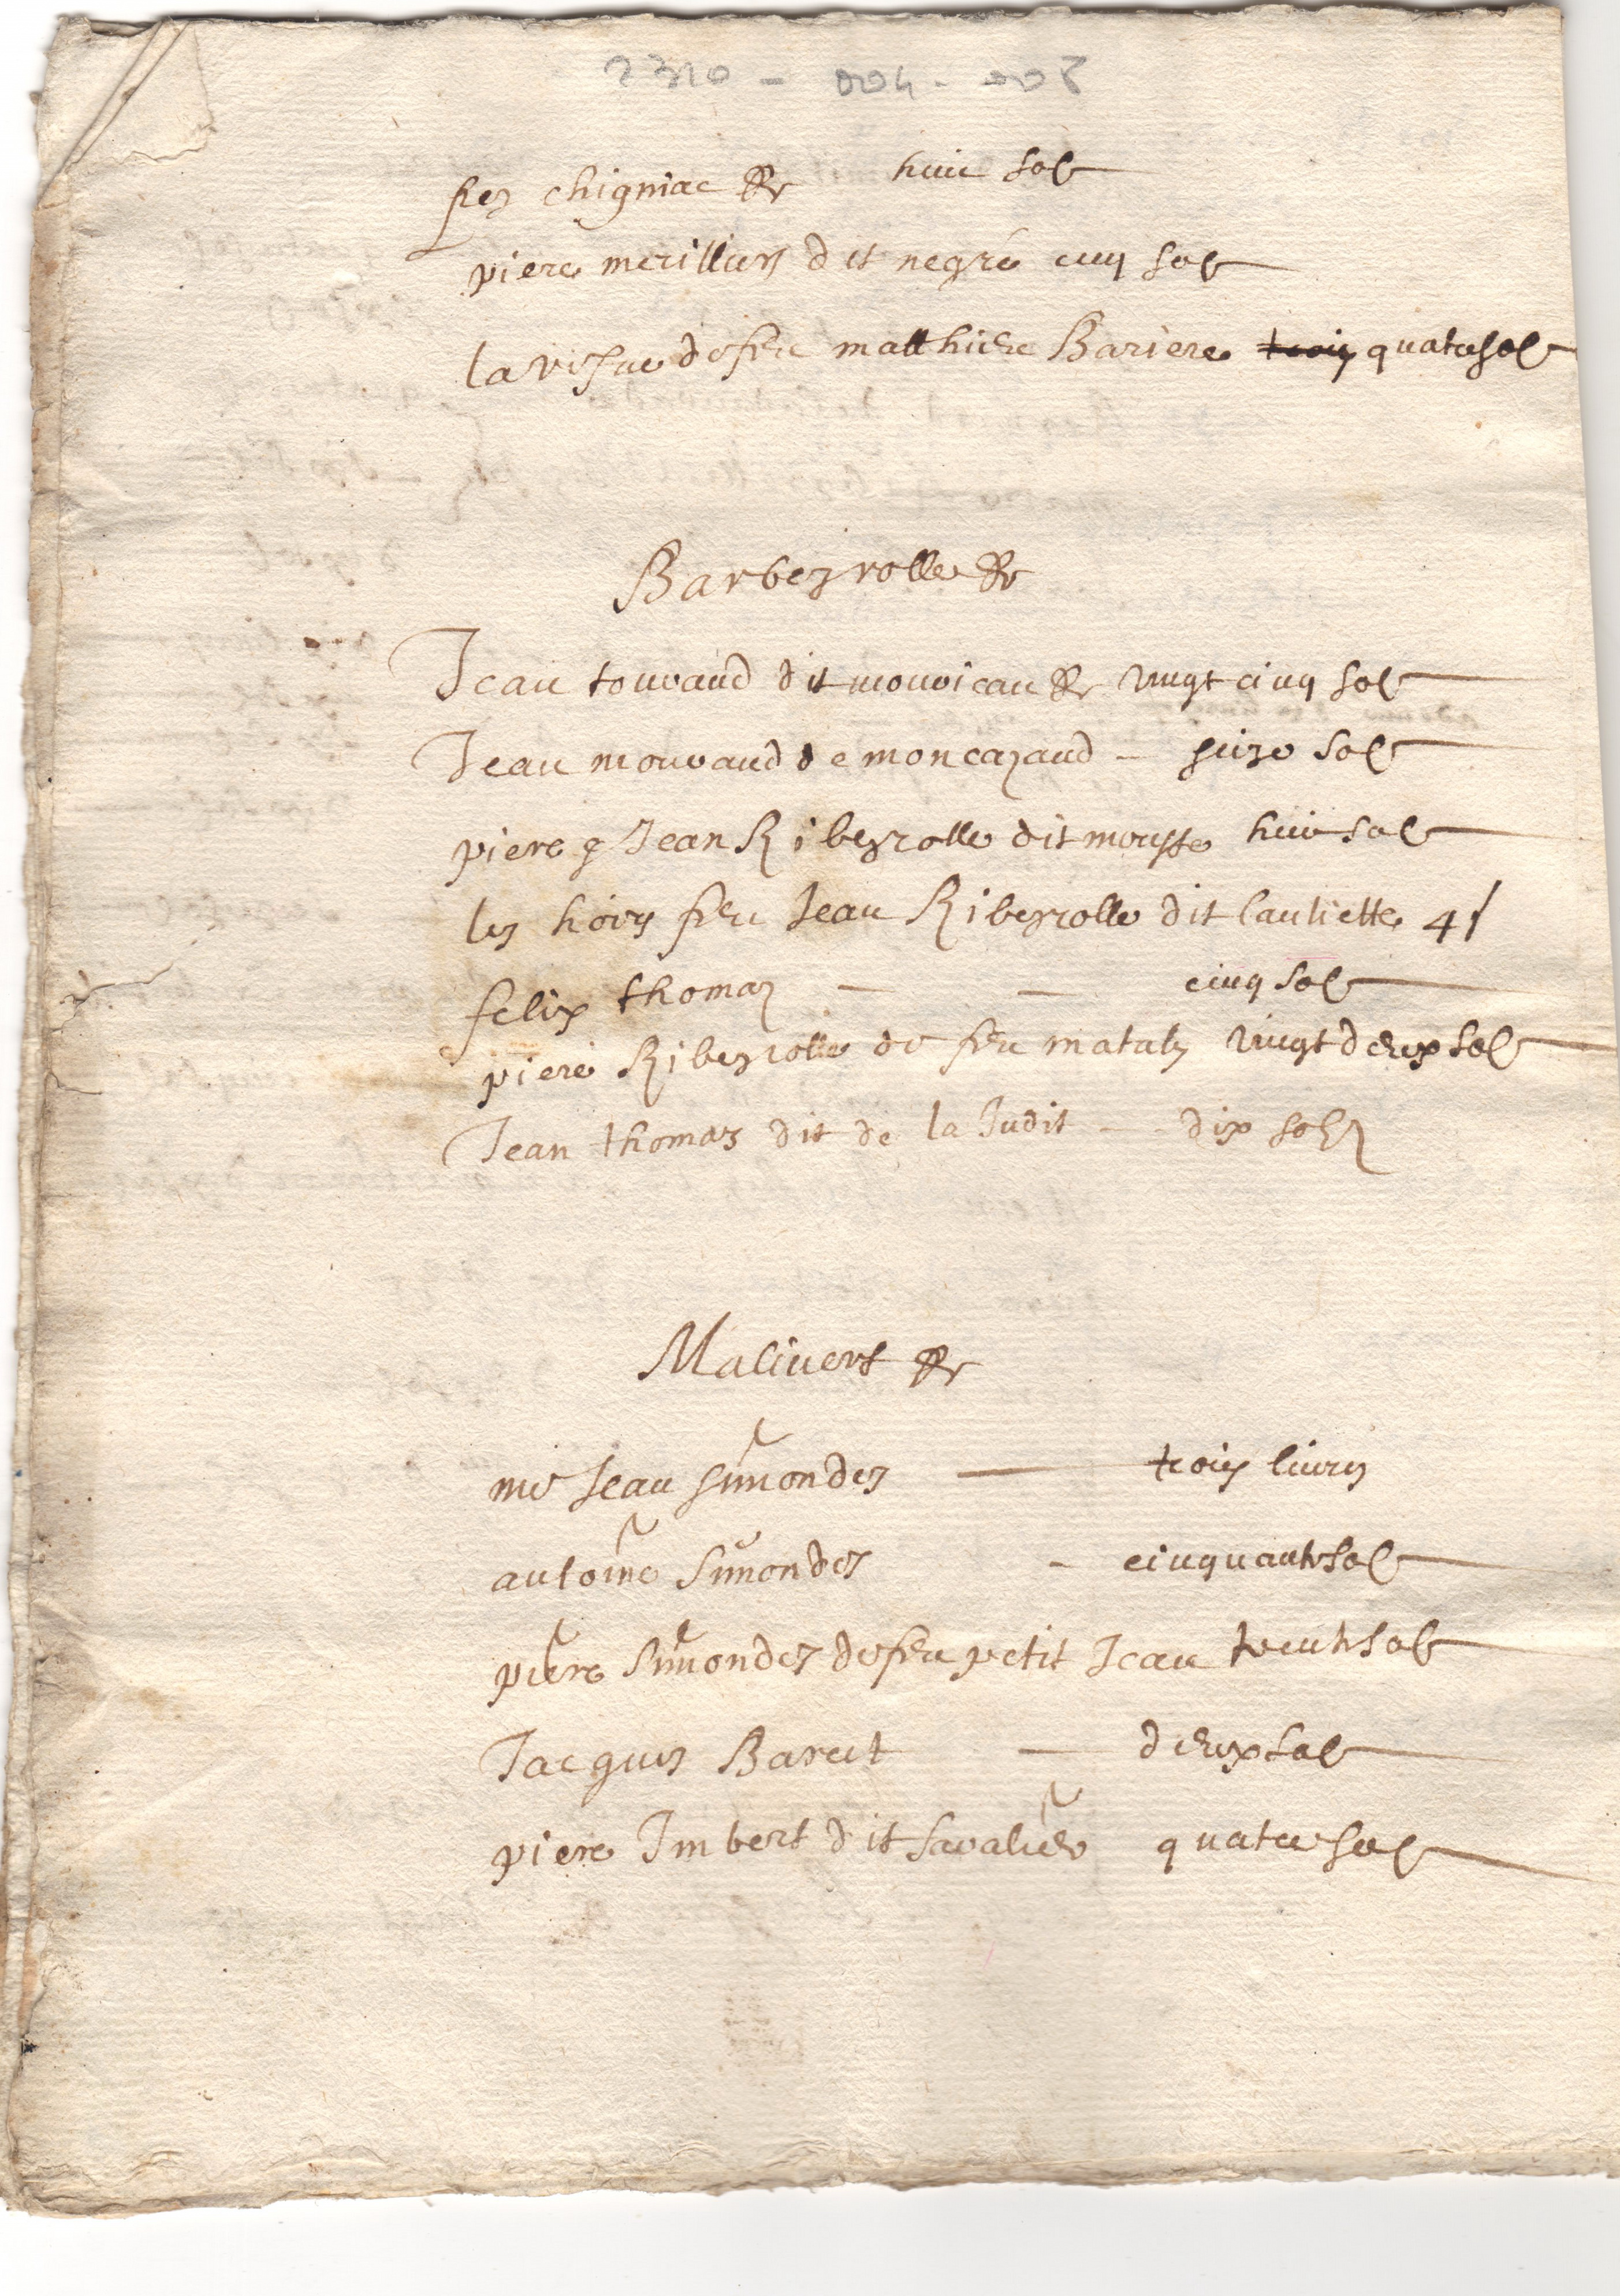 2310 - 004 - 008
frez chigniac huic sols
piere merilliers dit negré cinq sols
la vefue de feu matthieu Bariere trois quatre sols
Barbeyrolle
Jean touvaud dit mouvicau vingt cinq sols
Jean mouvaud de moncazaud - seize sols
piere & Jean Ribeyrolle dit mousse huic sols
les hoirs feu Jean Ribeyrolle dit lauliette 4 s
felix thomas - - cinq sols
piere Ribeyrolle de feu mataly vingt deux sols
Jean thomas dit de la Judit - - dix solz
Malivert
me Jean simondes - trois livres
antoine simondes - cinquante sols
piere simondes de feu petit Jean trente sols
Jacques Barest - deux sols
piere Imbert dit savalier quatre sols